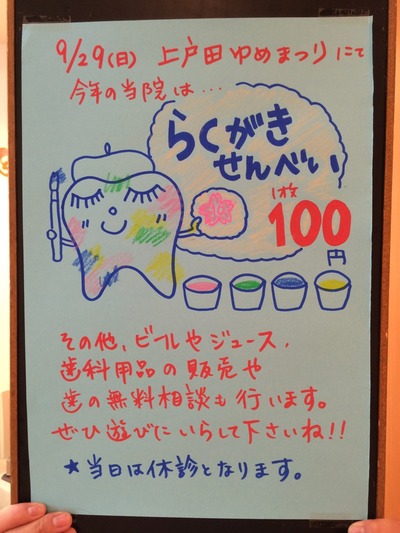 9/29(日) 上戸田ゆめまつりにて
今年の当院は…
らくがき
せんべい
1枚
100円
その他、ビールやジュース、
歯科用品の販売や
歯の無料相談も行います。
ぜひ遊びにいらして下さいね!!
★当日は休診となります。